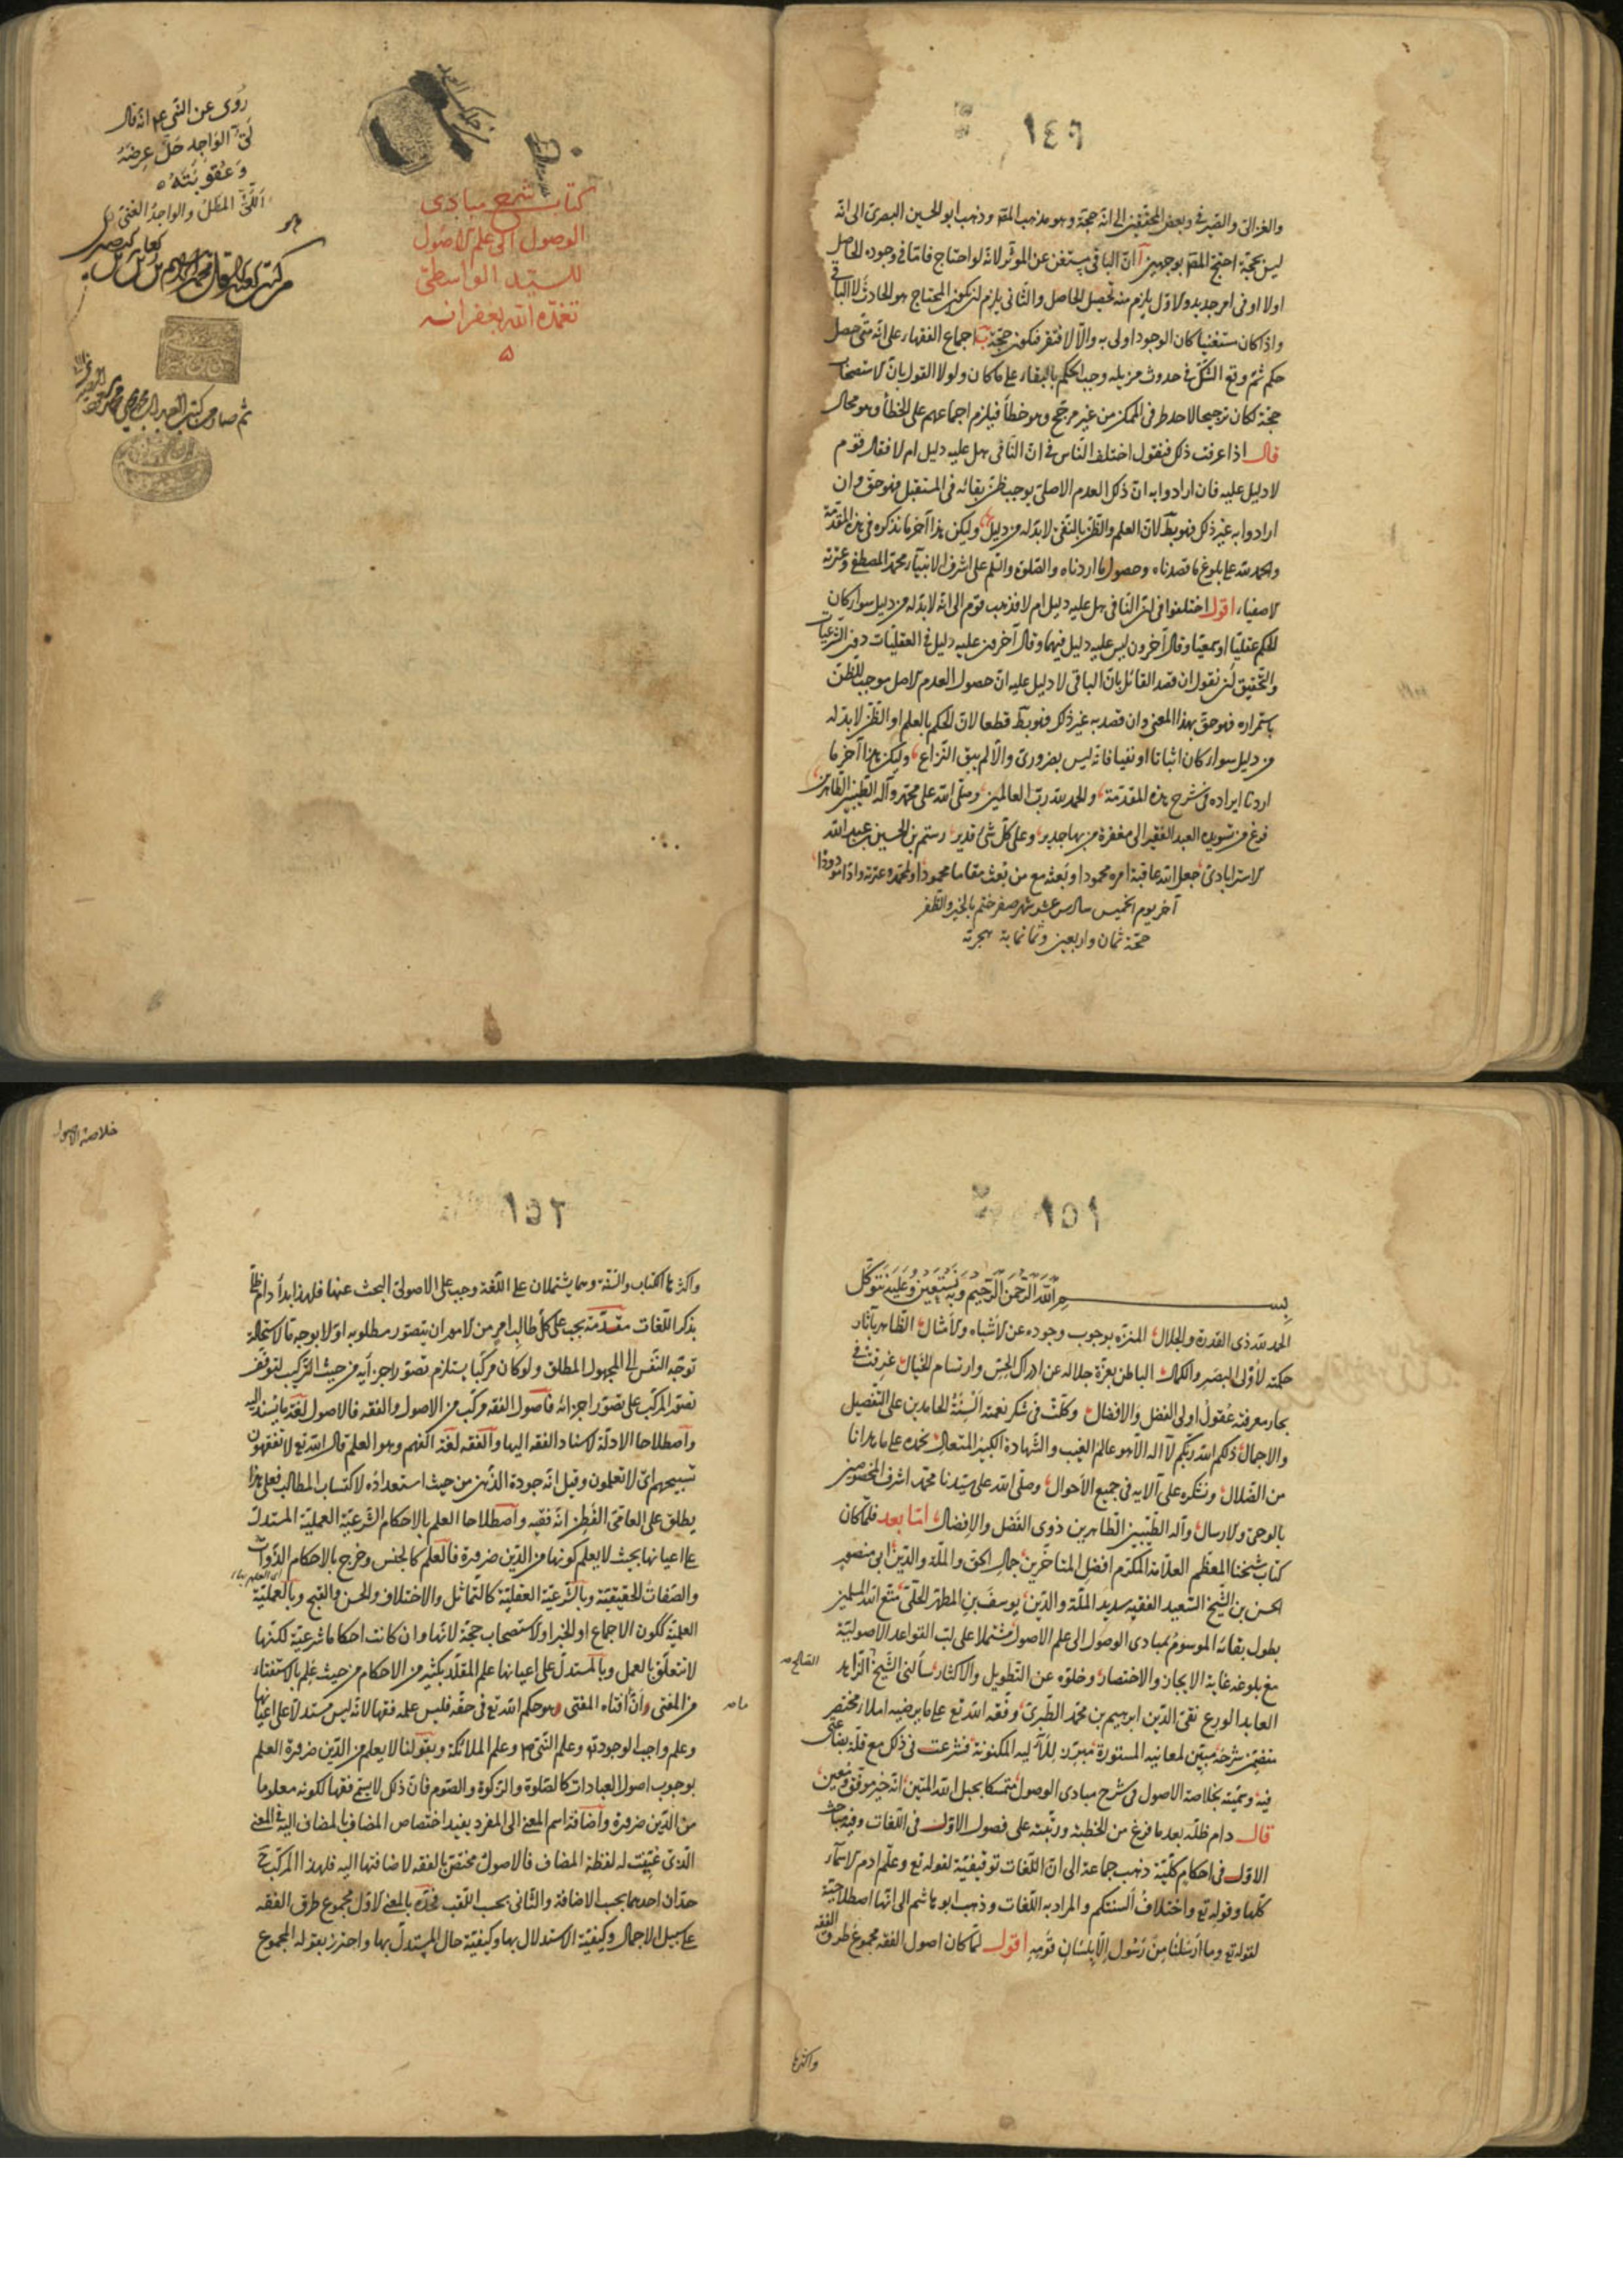 ١٤٦
والغزالى والصيرفى وبعض المحققين الى انّه حجّة وهو مذهب المصَ وذهب ابو الحسين البصرى الى انّه
ليس بحجّة احتج المصَ بوجهين آ انّ الباقى مستغن عن المؤثر لانّه لو احتاج فامّا فى وجوده الحاصل
اولا او فى امر جديد والاوّل يلزم منه تحصيل الحاصل والثانى يلزم ان يكون المحتاج هو الحادث لا الباقى
واذا كان مستغنيا كان الوجود اولى به والّا لافتقر فيكون حجّة ب اجماع الفقهاء على انّه متى حصل
حكم ثمّ وقع الشكّ فى حدوث مزيله وجب الحكم بالبقاء على ما كان ولولا القول بانّ الاستصحاب
حجّة لكان ترجيحا لاحد طرفى الممكن من غير مرجّح وهو خطأ فيلزم اجماعهم على الخطأ وهو محال
قال اذا عرفت ذلك فنقول اختلف النّاس فى انّ النّافى هل عليه دليل ام لا فقال قوم
لا دليل عليه فان ارادوا به انّ ذلك العدم الاصلىّ يوجب ظنّ بقائه فى المستقبل فهو حق وان
ارادوا به غير ذلك فهو بط لان العلم والظنّ بالنفى لا بدّ له من دليل وليكن هذا آخر ما نذكره فى هذه المقدّمة
والحمد لله على بلوغ ما قصدناه وحصول ما اردناه والصّلوة والسّلم على اشرف الانبيآء محمّد المصطفى وعترته
الاصفياء اقول اختلفوا فى انّ النّافى هل عليه دليل ام لا فذهب قوم الى انّه لا بدّ له من دليل سواء كان
الحكم عقليّا او سمعيّا وقال آخرون ليس عليه دليل فيهما وقال آخرون عليه دليل فى العقليّات دون الشّرعيّات
والتّحقيق ان نقول ان قصد القائل بانّ الباقى لا دليل عليه انّ حصول العدم الاصل موجب للظّنّ
باستمراره فهو حقّ بهذا المعنى وان قصد به غير ذلك فهو بط قطعا لانّ الحكم بالعلم او الظّنّ لا بدّ له
من دليل سواء كان اثباتا او نفيا فانّه ليس بضرورىّ والّا لم يبق النّزاع وليكن هذا آخر ما
اردنا ايراده فى شرح هذه المقدّمة والحمد لله ربّ العالمين وصلّى الله على محمّد وآله الطّيبين الطّاهرين
فرغ من تسويده العبد الفقير الى مغفرة من بها جدير وعلى كلّ شئ قدير رستم بن الحسين بن عبد الله
الاسترابادى جعل الله عاقبة امره محمودا وبعثه مع من بعث مقاما محمودا
آخر يوم الخميس سادس عشر شهر صفر ختم بالخير والظّفر
حجّة ثمان واربعين وثمانماية هجريّة
روى عن النّبى عم انّه قال
لَىُّ الوَاجِد حَلَّ عِرضَهُ
وَعُقوبَتَهُ
اَللَّىُّ المَطلُ والواجِدُ الغنىّ
كتاب شرح مبادى
الوصول الى علم الاصول
للسيّد الواسطىّ
تغمّده الله بغفرانه
١٥١
بِسمِ اللهِ الرَّحمنِ الرَّحِيمِ وَبِهِ نَستَعِين وَعَلَيهِ نَتَوكَّل
الحمد لله ذى القدرة والجلال المنزّه بوجوب وجوده عن الاشباه والامثال الظّاهر بآثار
حكمته لاولى البصر والكمال الباطن بعزّة جلاله عن ادراك الحِسّ وارتسام الخيال غرقت فى
بحار معرفته عُقولُ اولى الفضل والافضال وكلّت فى شكر نعمته السِنَةُ الحامدين على التّفصيل
والاجمال ذلكم الله ربّكم لآ اله الّا هو عالم الغيب والشّهادة الكبير المتعال نحمده على ما هدانا
من الضّلال ونشكره على آلايه فى جميع الاحوال وصلّى الله على سيّدنا محمّد اشرف المخصوصين
بالوحى والارسال وآله الطّيّبين الطّاهرين ذوى الفضل والافضال امّا بعد فلمّا كان
كتاب شيخنا المعظّم العلّامة المكرّم افضل المتاخّرين جمال الحق والملّة والدّين ابى منصور
الحسن بن الشّيخ السّعيد الفقيه سديد الملّة والدّين يوسف بن المطهّر الحلّىّ متّع الله المسلمين
بطول بقائه الموسوم بمبادى الوصول الى علم الاصول مشتملا على لبّ القواعد الاصوليّة
مع بلوغه غاية الايجاز والاختصار وخلوّه عن التّطويل والاكثار سألنى الشّيخ الزّاهد
الصّالح صح
العابد الورع تقى الدّين ابرهيم بن محمّد الطّبرىّ وفّقه الله تع على ما يرضيه املاء مختصر
يتضمّن شرحه مبيّن لمعانيه المستورة مبرز للآليه المكنونة فشرعت فى ذلك مع قلّة بضاعتى
فيه وسمّيته بخلاصة الاصول فى شرح مبادى الوصول متمسكا بحبل الله المتين انّه خير موفّق ومعين
قال دام ظلّه بعد ما فرغ من الخطبة ورتّبته على فصول الاوّل فى اللّغات وفيه مباحث
الاوّل فى احكام كلّيّة ذهب جماعة الى انّ اللّغات توقيفيّة لقوله تع وعلّم ادم الاسمآء
كلّها وقوله تع واختلافُ السنتكم والمراد به اللّغات وذهب ابو هاشم الى انّها اصطلاحيّة
لقوله تع وما ارسَلنا مِن رَسُول اِلّا بِلِسَانِ قَومِهِ اقول لمّا كان اصول الفقه مجموع طرق الفقه
واكثرها
خلاصة الاصول
١٥٢
واكثرها الكتاب والسّنّة وهما يشتملان على اللّغة وجب على الاصولىّ البحث عنها فلهذا بدأ دام ظلّه
بذكر اللّغات مقدّمة يجب على كلّ طالبِ امرٍ من الامور ان يتصوّر مطلوبه اوّلا بوجه ما لاستحالة
توجّه النّفس الى المجهول المطلق ولو كان مركّبا يستلزم تصوّر اجزائه من حيث التّركيب لتوقّف
تصوّر المركّب على تصوّر اجزائه فاصول الفقه مركّب من الاصول والفقه فالاصول لغة ما يستند اليه
واصطلاحا الادلّة لاستناد الفقه اليها والفقه لغة الفهم وهو العلم قال الله تع لا تفقهون
تسبيحهم اى لا تعلمون وقيل انّه جودة الذّهن من حيث استعداده لاكتساب المطالب فعلى هذا
يطلق على العامّى الفَطِن انّه فقيه واصطلاحا العلم بالاحكام الشّرعيّة العمليّة المستدلّ
على اعيانها بحيث لا يعلم كونها من الدّين ضرورة فالعلم كالجنس وخرج بالاحكام الذّوات
والصّفات الحقيقيّة وبالشّرعيّة العقليّة كالتماثل والاختلاف والحسن والقبح وبالعمليّة
العلميّة ككون الاجماع او الخبر او الاستصحاب حجّة لانّها وان كانت احكاما شرعيّة لكنّها
لا تتعلّق بالعمل وبالمستدلّ على اعيانها علم المقلّد بكثير من الاحكام من حيث عَلِم بالاستفتاء
من المفتى وانّ ما افتاه المفتى وهو حكم الله تع فى حقّه فليس علمه فقها لانّه ليس مستدلّا على اعيانها
وعلم واجب الوجود تع وعلم النّبى ص وعلم الملائكة وبقولنا لا يعلم من الدّين ضرورة العلم
بوجوب اصول العبادات كالصّلوة والزّكوة والصّوم فانّ ذلك لا يسمّى فقها لكونه معلوما
من الدّين ضرورة واضافة اسم المعنى الى المفرد يفيد اختصاص المضاف بالمضاف اليه فى المعنى
الّذى عيّنت له لفظة المضاف فالاصول مختصّ بالفقه لاضافتها اليه فلهذا المركّب ح
حدّان احدهما بحسب الاضافة والثّانى بحسب اللّقب فحدّه بالمعنى الاوّل مجموع طرق الفقه
على سبيل الاجمال وكيفيّة الاستدلال بها وكيفيّة حال المستدلّ بها واحترز بقوله المجموع